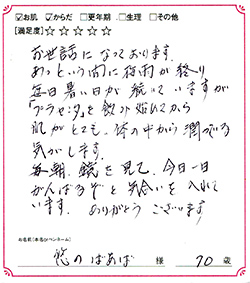 ☑お肌 ☑からだ □更年期 □生理 □その他
[満足度]☆☆☆☆☆
お世話になっております。
あっという間に梅雨が終り
毎日暑い日が続いていますが
「プラセンタ」を飲み始めてから
肌がとても、体の中から潤っている
気がします。
毎朝、鏡を見て、今日一日
がんばるぞと気合いを入れて
います。 ありがとうございます
お名前(本名orペンネーム)
悠のばあば 様 70 歳